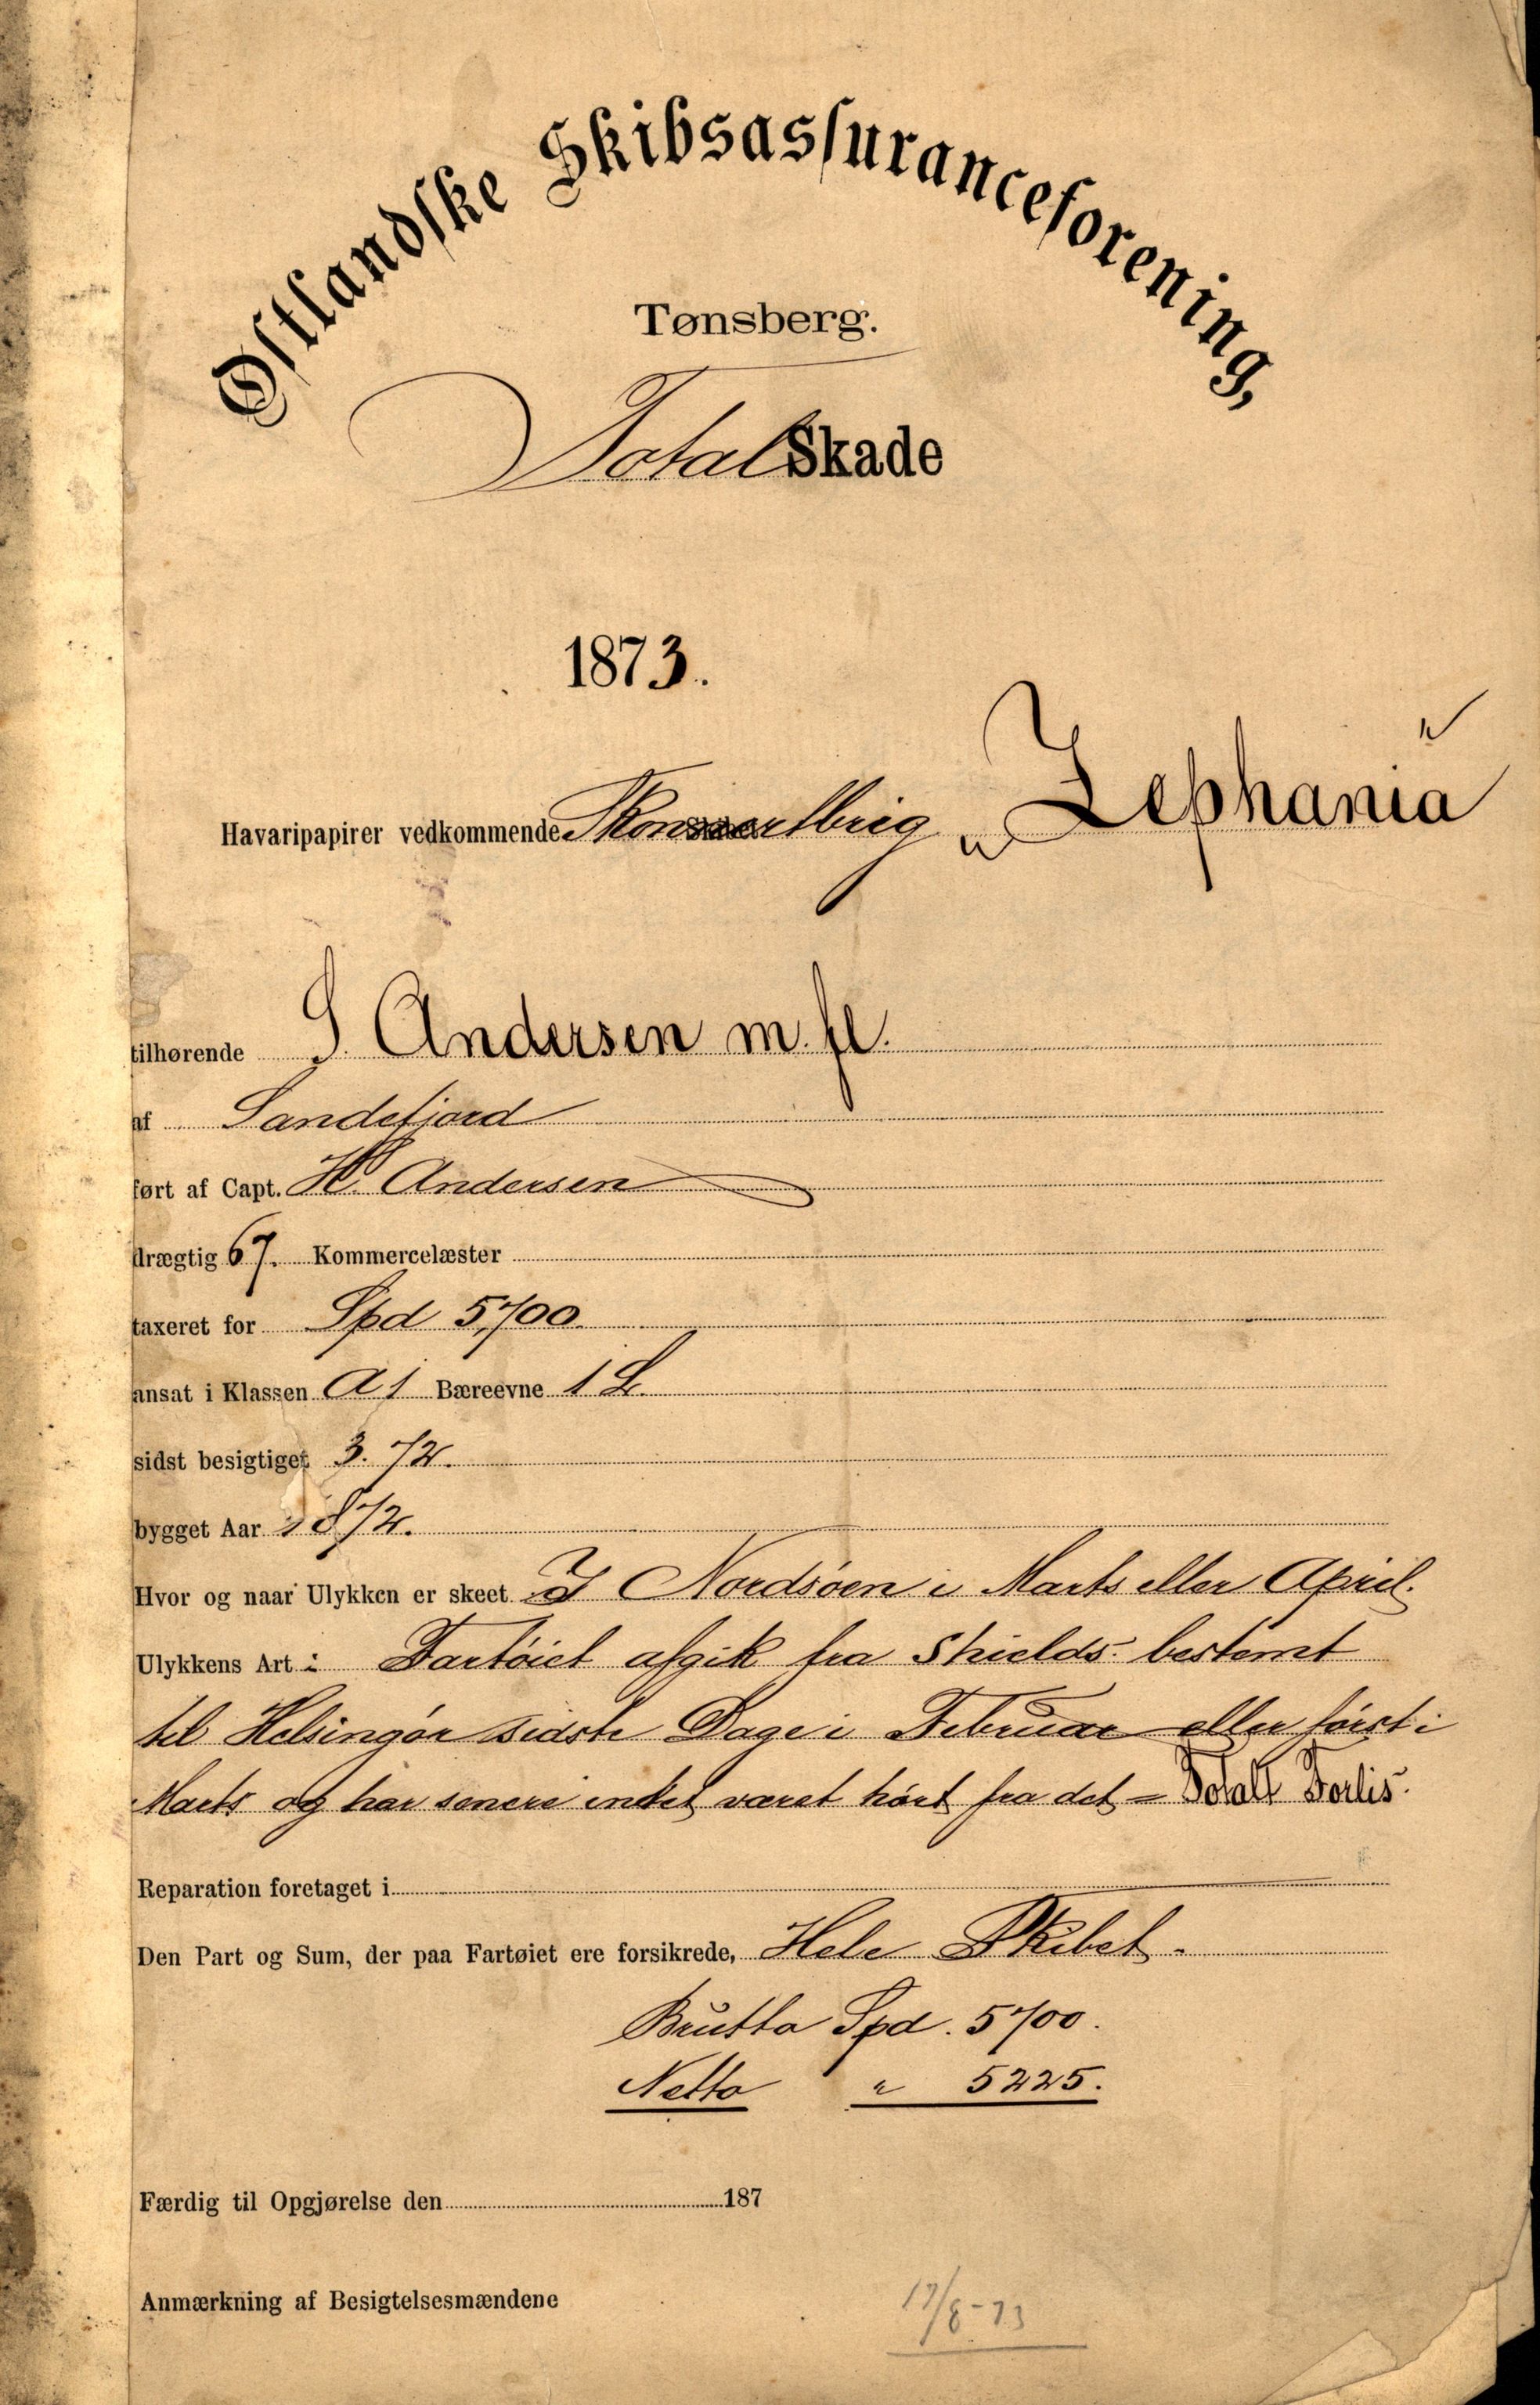 Østlandske Skibsassuranceforening,
Tønsberg.
Total Skade
1873.
Havaripapirer vedkommende Skonnertbrig „Zephania"
tilhørende S. Andersen m. fl.
af Sandefjord
ført af Capt. H. Andersen
drægtig 67. Kommercelæster
taxeret for Spd 5,700
ansat i Klassen A 1 Bæreevne 1 L.
sidst besigtiget 3. 72.
bygget Aar 1872.
Hvor og naar Ulykken er skeet I Nordsøen i Marts eller April.
Ulykkens Art : Fartøiet afgik fra Shields bestemt
til Helsingør sidste Dage i Februar eller først i
Marts og har senere intet været hørt fra det = Totalt Forlis.
Reparation foretaget i
Den Part og Sum, der paa Fartøiet ere forsikrede, Hele Skibet.
Brutto Spd. 5700.
Netto " 5225.
Færdig til Opgjørelse den 187
Anmærkning af Besigtelsesmændene
17/8-73